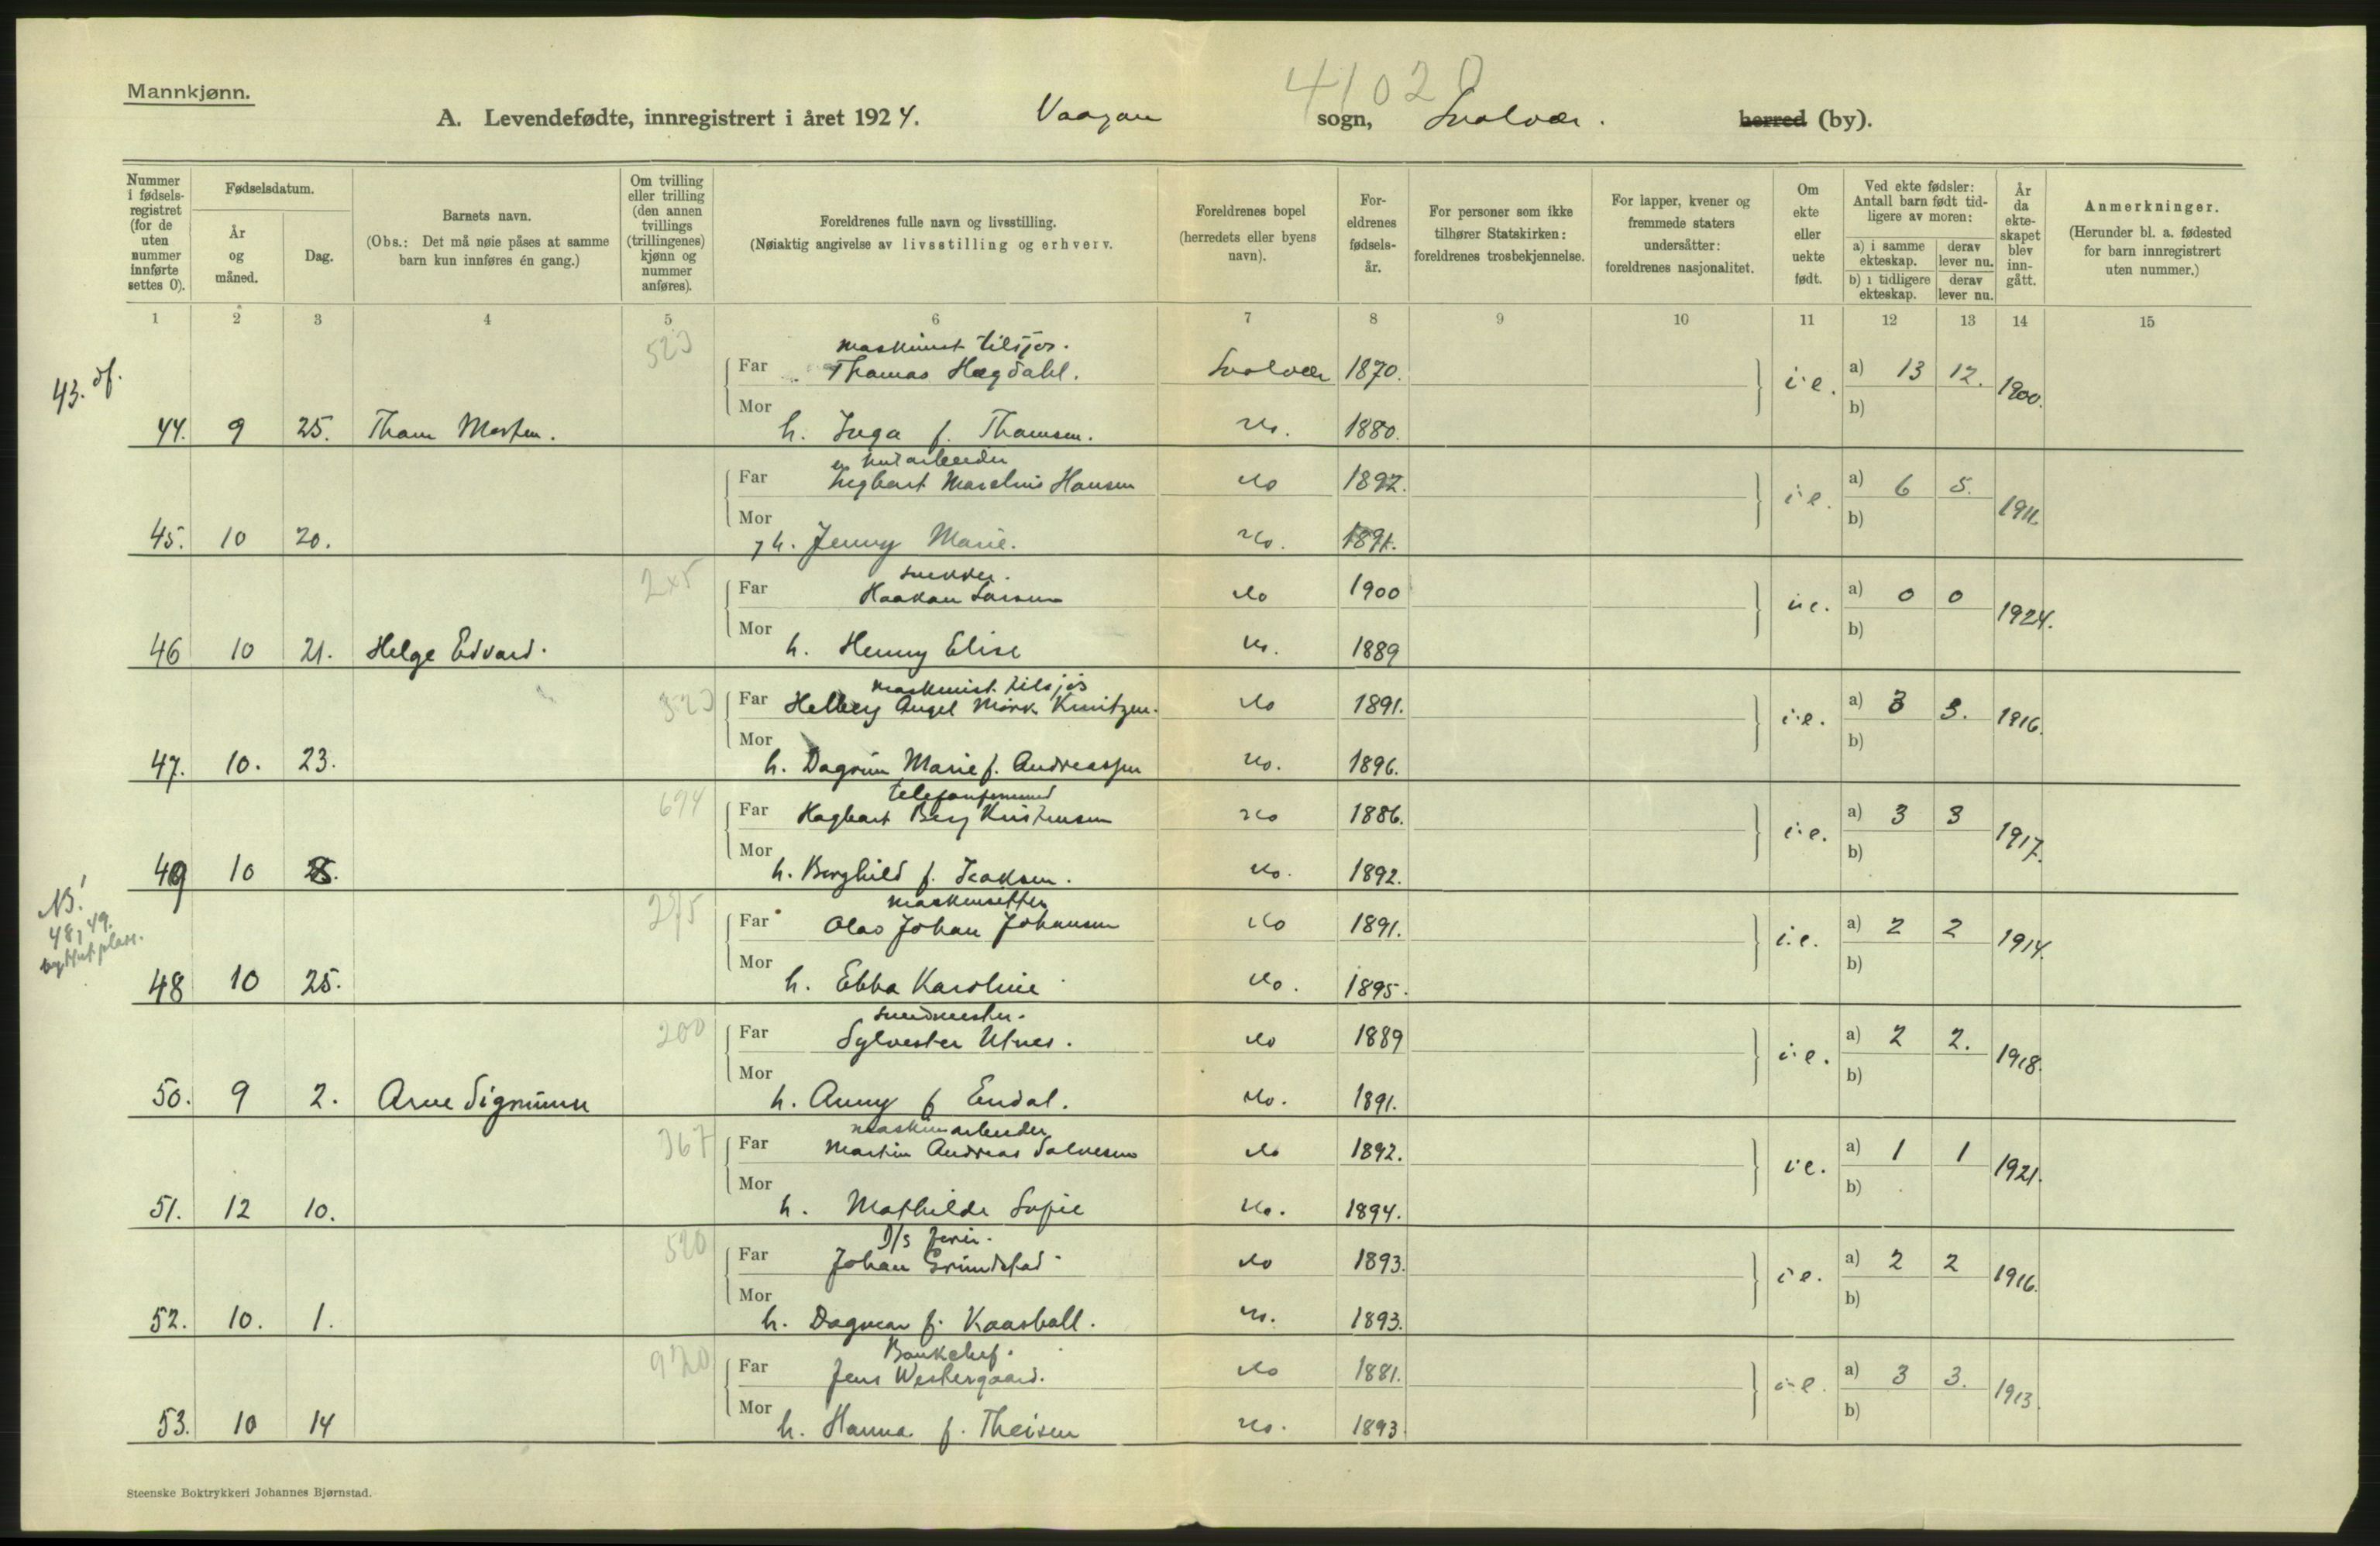 41020
Mannkjønn.
A. Levendefødte, innregistrert i året 1924. Vaagan sogn, Svolvær. herred (by).
Nummer i fødsels-registret (for de uten nummer innførte settes 0).
Fødselsdatum.
År og måned.
Dag.
Barnets navn.
(Obs.: Det må nøie påses at samme barn kun innføres én gang.)
Om tvilling eller trilling (den annen tvillings (trillingenes) kjønn og nummer anføres).
Foreldrenes fulle navn og livsstilling.
(Nøiaktig angivelse av livsstilling og erhverv.
Foreldrenes bopel (herredets eller byens navn).
For-eldrenes fødsels-år.
For personer som ikke tilhører Statskirken: foreldrenes trosbekjennelse.
For lapper, kvener og fremmede staters undersåtter: foreldrenes nasjonalitet.
Om ekte eller uekte født.
Ved ekte fødsler: Antall barn født tid-ligere av moren:
a) i samme ekteskap.
derav lever nu.
b) i tidligere ekteskap.
derav lever nu.
År da ekte-skapet blev inn-gått.
Anmerkninger.
(Herunder bl. a. fødested for barn innregistrert uten nummer.)
1 2 3 4 5 6 7 8 9 10 11 12 13 14 15
43. df.
523
maskinist tilsjøs.
Far Thomas Hegdahl. Svolvær 1870. i.e. a) 13 12. 1900.
b)
44. 9 25. Thom Morten. Mor h. Inga f. Thomsen. do. 1880.
Far Ingbart Marelius Hansen do 1892. i.e. a) 6 5. 1911.
b)
45. 10 20. Mor h. Jenny Marie. do. 1891.
245
snekker.
Far Haakon Larsen do 1900 i.e. a) 0 0 1924.
b)
46 10 21. Helge Edvard. Mor h. Henny Elise do. 1889
523
maskinist tilsjøs
Far Helberg Angel Mörk Knitzen. do 1891. i.e. a) 3 3. 1916.
b)
47. 10. 23. Mor h. Dagrun Marie f. Andreassen do. 1896.
694
Far Hagbart Berg Kristensen do 1886. i.e. a) 3 3 1917.
b)
49 10 Mor h. Borghild f. Isaksen. do. 1892.
NB!
48, 49.
byttet plass.
275
maskinsetter
Far Olav Johan Johansen do 1891. i.e. a) 2 2 1914.
b)
48 10 25. Mor h. Ebba Karoline do. 1895.
200
smedmester.
Far Sylvester Utnes. do 1889 i.e. a) 2 2. 1918.
b)
50. 9 2. Arne Sigmunn Mor h. Anny f Endal. do. 1891.
367
maskinarbeider
Far Martin Andreas Salvesen do 1892. i.e. a) 1 1 1921.
b)
51. 12 10. Mor h. Mathilde Sofie do. 1894.
520
Far Johan Grundstad do 1893. i.e. a) 2 2 1916.
b)
52. 10. 1. Mor h. Dagmar f. Kaasball. do. 1893.
920
Bankchef.
Far Jens Westergaard. do 1881. i.e. a) 3 3. 1913.
b)
53. 10 14 Mor h. Hanna f. Theisen do. 1893.
Steenske Boktrykkeri Johannes Bjørnstad.